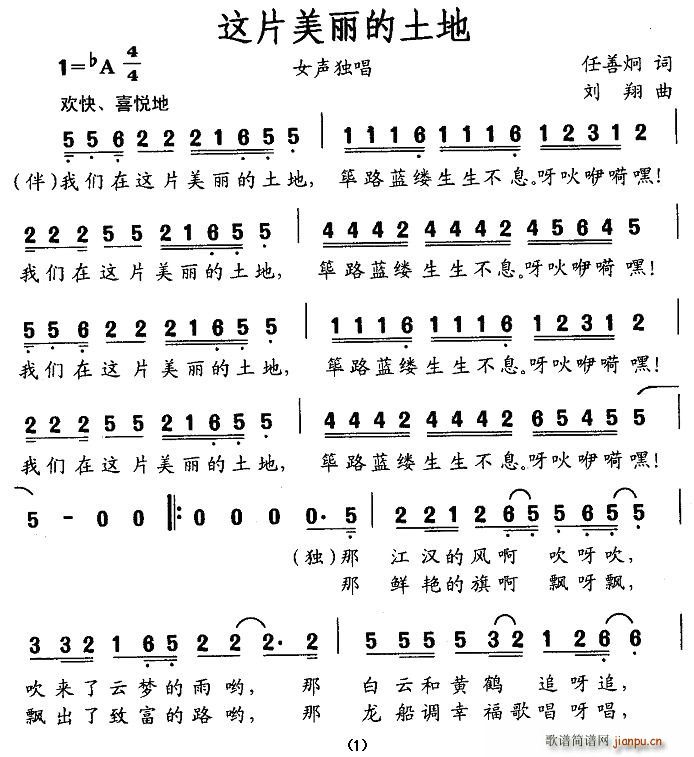 这片美丽的土地
1=♭A 4/4
女声独唱
任善炯 词
刘 翔 曲
欢快、喜悦地
5 5 6 2 2 2 1 6 5 5 | 1 1 1 6 1 1 1 6 1 2 3 1 2 |
(伴)我们在这片美丽的土地, 筚路蓝缕生生不息。呀吙咿嗬嘿!
2 2 2 5 5 2 1 6 5 5 | 4 4 4 2 4 4 4 2 4 5 6 4 5 |
我们在这片美丽的土地, 筚路蓝缕生生不息。呀吙咿嗬嘿!
5 5 6 2 2 2 1 6 5 5 | 1 1 1 6 1 1 1 6 1 2 3 1 2 |
我们在这片美丽的土地, 筚路蓝缕生生不息。呀吙咿嗬嘿!
2 2 2 5 5 2 1 6 5 5 | 4 4 4 2 4 4 4 2 6 5 4 5 5 |
我们在这片美丽的土地, 筚路蓝缕生生不息。呀吙咿嗬嘿!
5 - 0 0 ‖: 0 0 0 0· 5 | 2 2 1 2 6 5 5 6 5 5 |
(独)那 江汉的风啊 吹呀吹,
那 鲜艳的旗啊 飘呀飘,
3 3 2 1 6 5 2 2 2· 2 | 5 5 5 5 3 2 1 2 6 6 |
吹来了云梦的雨哟, 那 白云和黄鹤 追呀追,
飘出了致富的路哟, 那 龙船调幸福歌唱呀唱,
(1)
歌谱简谱网
jianpu.cn